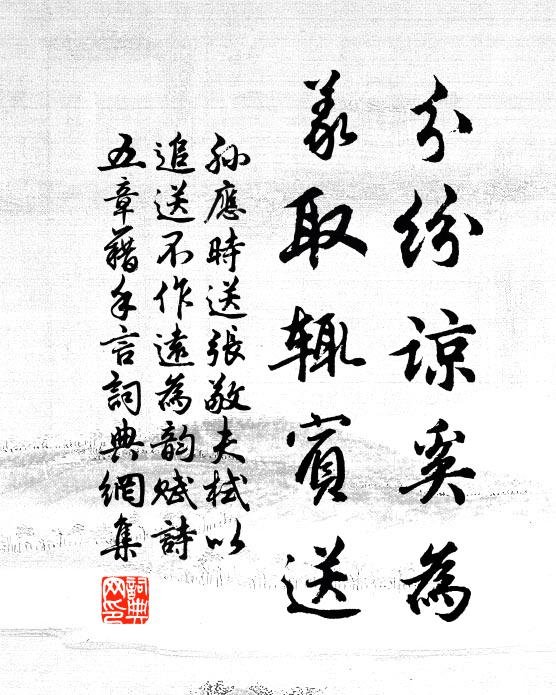 分紛諒奚為
義取輒賓送
孫應時送張敬夫栻以
追送不作遠為韵賦詩
五章藉手言詞典網集
詞典
网印